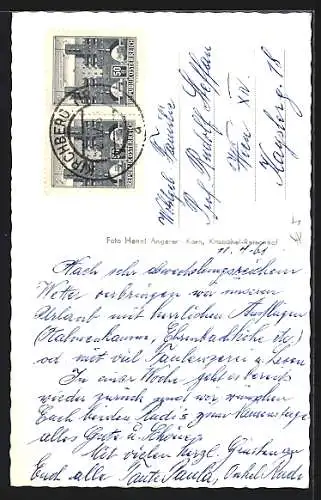 50
REPUBLIK ÖSTERREICH
50
REPUBLIK ÖSTERREICH
KIRCHBERG
Wohlgeb. Familie
Prof. Rudolf Steffan
Wien XV.
18
Foto Hennl Angerer
11. 7. 61.
Nach sehr abwechslungsreichem
Wetter verbringen wir unseren
Urlaub mit herrlichen Ausflügen
(Hahnenkamm, Ehrenbachhöhe etc.)
und mit viel Faulenzerei u. Lesen
In einer Woche geht es bereits
wieder zurück und wir wünschen
Euch beiden Rudi's zum Namenstage
alles Gute u. Schöne,
Mit vielen herzl. Grüssen an
Euch alle Tante Paula, Onkel Rudi